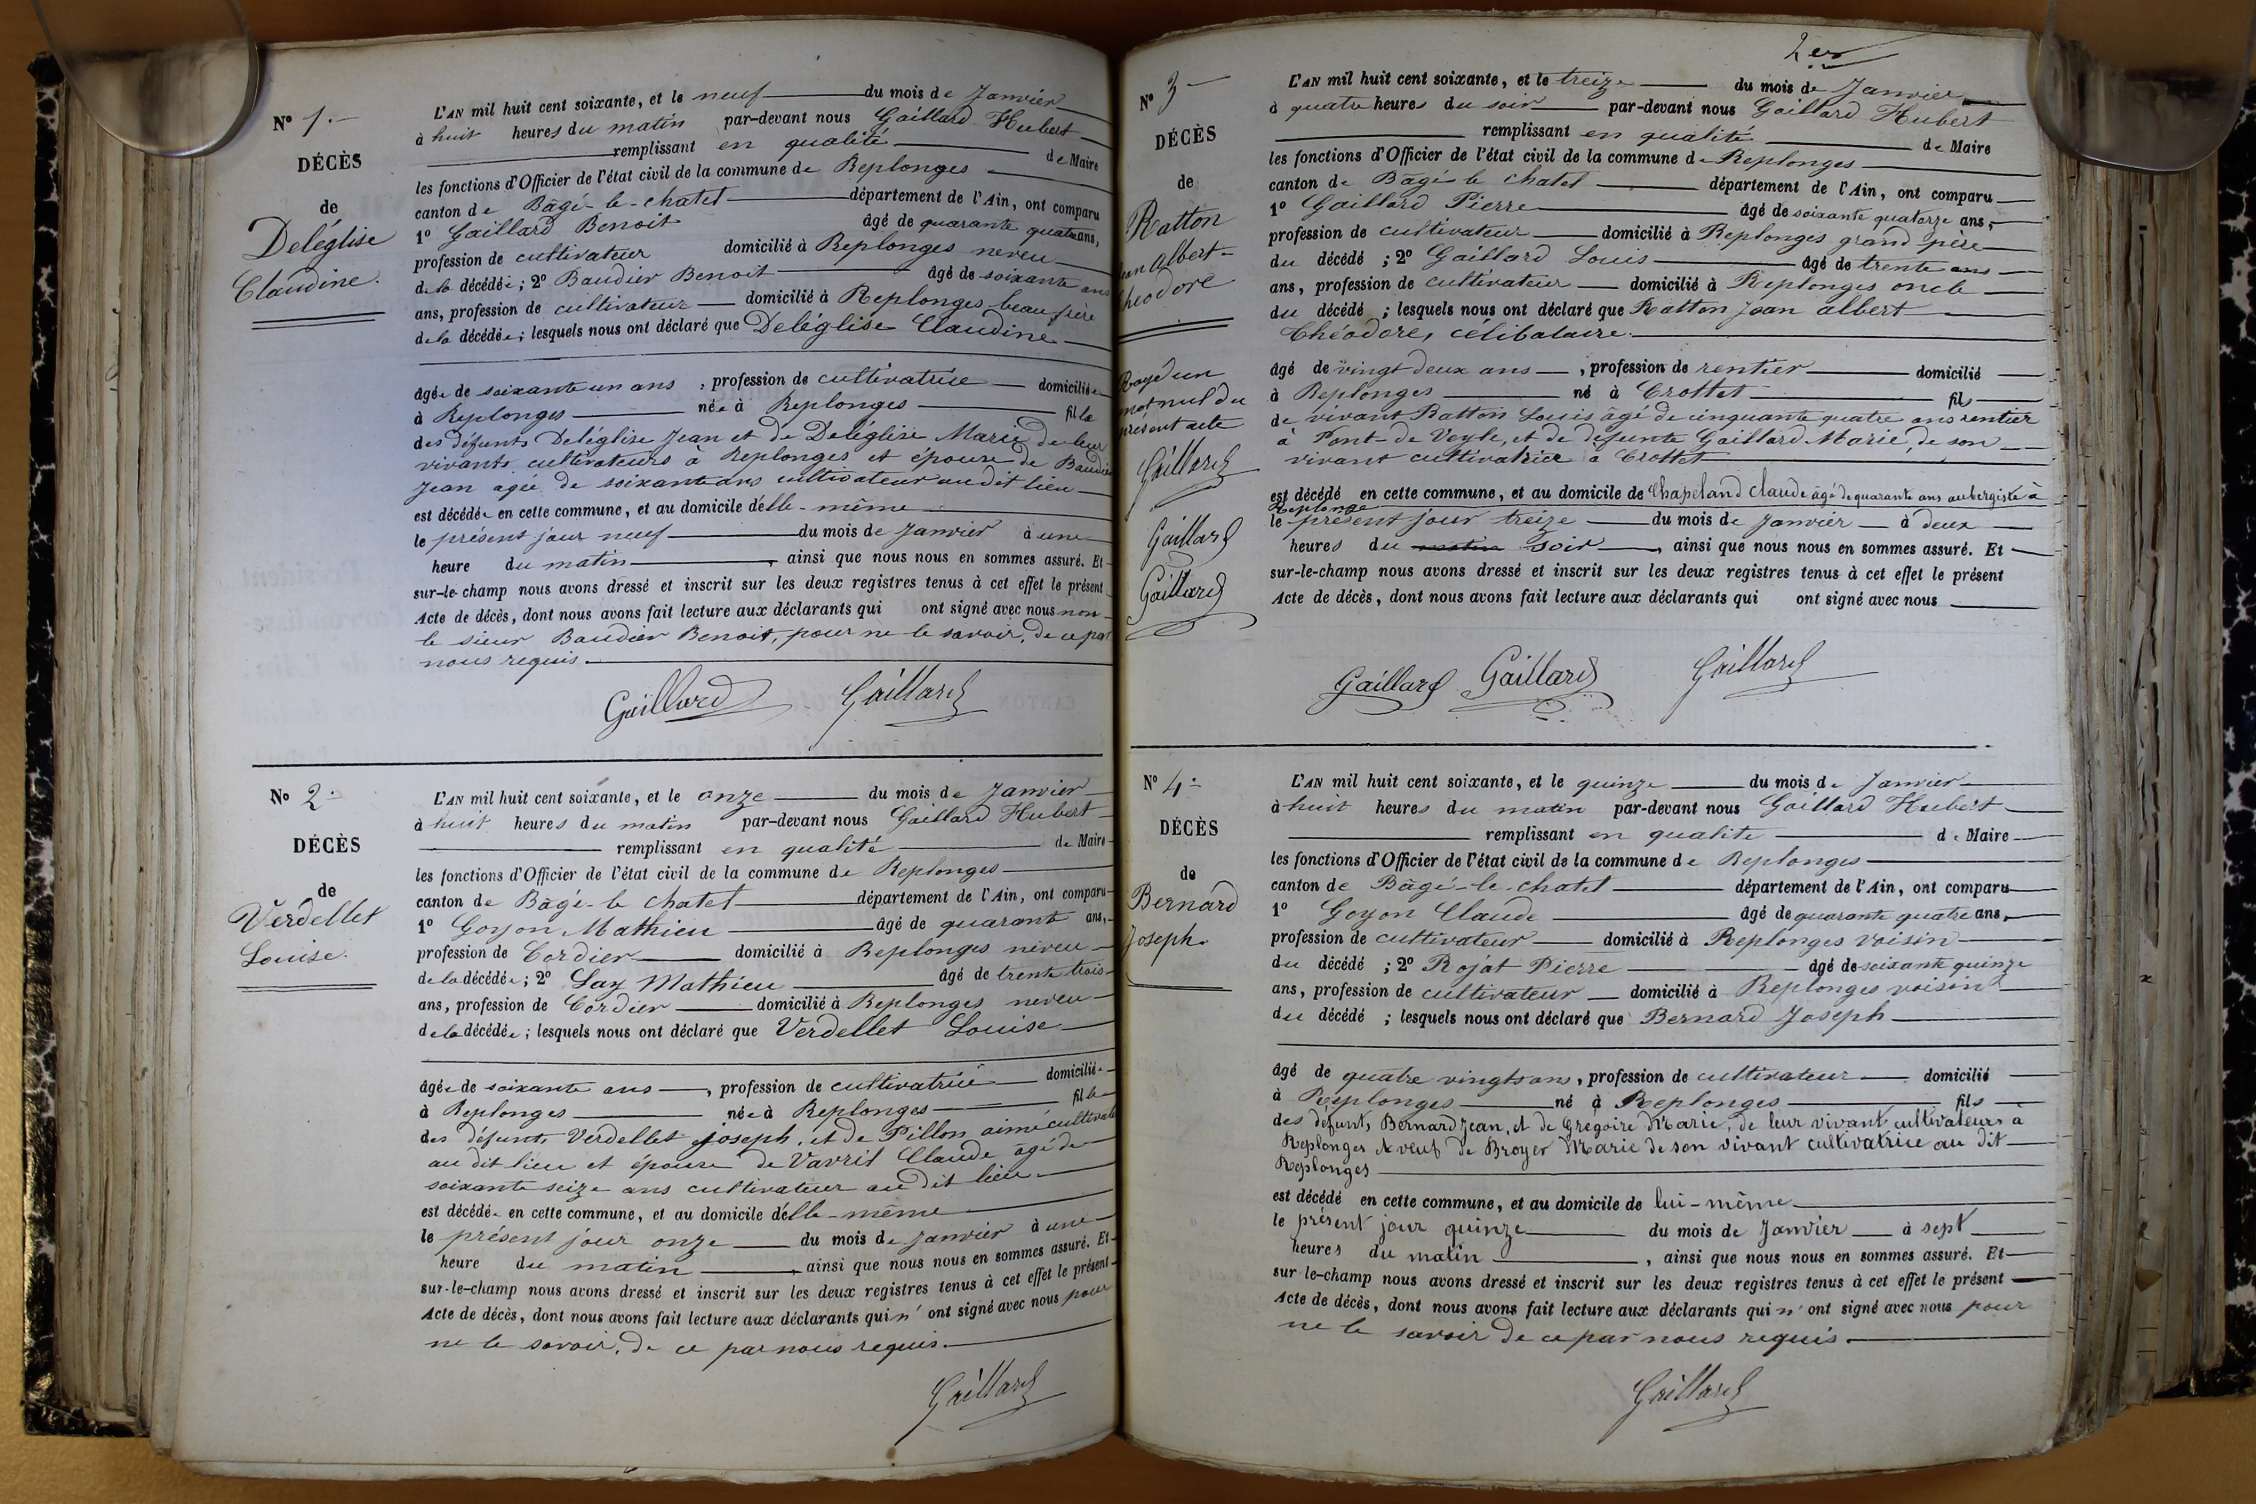 N° 1.
DÉCÈS
de
Deléglise
Claudine.
L'AN mil huit cent soixante, et le neuf du mois de Janvier
à huit heures du matin par-devant nous Gaillard Hubert
remplissant en qualité de Maire
les fonctions d'Officier de l'état civil de la commune de Replonges
canton de Bâgé-le-chatel département de l'Ain, ont comparu
1° Gaillard Benoit âgé de quarante quatre ans,
profession de cultivateur domicilié à Replonges neveu
de la décédée; 2° Baudier Benoit âgé de soixante ans
ans, profession de cultivateur domicilié à Replonges beau frère
de la décédée; lesquels nous ont déclaré que Deléglise Claudine
âgée de soixante un ans, profession de cultivatrice domiciliée
à Replonges née à Replonges fille
des défunts Deléglise Jean et de Deléglise Marie de leur
vivants cultivateurs à Replonges et épouse de Baudier
Jean agée de soixante ans cultivateur au dit lieu
est décédée en cette commune, et au domicile d'elle-même
le présent jour neuf du mois de Janvier à une
heure du matin, ainsi que nous nous en sommes assuré. Et
sur-le-champ nous avons dressé et inscrit sur les deux registres tenus à cet effet le présent
Acte de décès, dont nous avons fait lecture aux déclarants qui ont signé avec nous non
le sieur Baudier Benoit, pour ne le savoir, de ce par
nous requis.
Gaillard Gaillard
N° 2.
DÉCÈS
de
Verdellet
Louise.
L'AN mil huit cent soixante, et le onze du mois de Janvier
à huit heures du matin par-devant nous Gaillard Hubert
remplissant en qualité de Maire
les fonctions d'Officier de l'état civil de la commune de Replonges
canton de Bâgé-le chatel département de l'Ain, ont comparu
1° Goyon Mathieu âgé de quarante ans,
profession de Cordier domicilié à Replonges neveu
de la décédée; 2° Lay Mathieu âgé de trente trois
ans, profession de Cordier domicilié à Replonges neveu
de la décédée; lesquels nous ont déclaré que Verdellet Louise
âgée de soixante ans, profession de cultivatrice domiciliée
à Replonges née à Replonges fille
des défunts Verdellet Joseph, et de Pillon aimé
au dit lieu et épouse de Vavril Claude âgé de
soixante seize ans cultivateur au dit lieu
est décédée en cette commune, et au domicile d'elle-même
le présent jour onze du mois de Janvier à une
heure du matin, ainsi que nous nous en sommes assuré. Et
sur-le-champ nous avons dressé et inscrit sur les deux registres tenus à cet effet le présent
Acte de décès, dont nous avons fait lecture aux déclarants qui n'ont signé avec nous pour
ne le savoir, de ce par nous requis.
Gaillard
2er
N° 3
DÉCÈS
de
Ratton
Jean Albert
Théodore
Rayé un
mot nul du
présent acte
Gaillard
Gaillard
Gaillard
L'AN mil huit cent soixante, et le treize du mois de Janvier
à quatre heures du soir par-devant nous Gaillard Hubert
remplissant en qualité de Maire
les fonctions d'Officier de l'état civil de la commune de Replonges
canton de Bâgé le chatel département de l'Ain, ont comparu
1° Gaillard Pierre âgé de soixante quatorze ans,
profession de cultivateur domicilié à Replonges grand père
du décédé; 2° Gaillard Louis âgé de trente ans
ans, profession de cultivateur domicilié à Replonges oncle
du décédé; lesquels nous ont déclaré que Ratton Jean albert
Théodore, célibataire.
âgé de vingt deux ans, profession de rentier domicilié
à Replonges né à Crottet fils
de vivant Ratton Louis âgé de cinquante quatre ans rentier
à Pont-de Veyle, et de défunte Gaillard Marie, de son
vivant cultivatrice à Crottet
est décédé en cette commune, et au domicile de Chapeland Claude âgé de quarante ans aubergiste à
Replonge
le présent jour treize du mois de Janvier à deux
heures du matin soir, ainsi que nous nous en sommes assuré. Et
sur-le-champ nous avons dressé et inscrit sur les deux registres tenus à cet effet le présent
Acte de décès, dont nous avons fait lecture aux déclarants qui ont signé avec nous
Gaillard Gaillard Gaillard
N° 4.
DÉCÈS
de
Bernard
Joseph.
L'AN mil huit cent soixante, et le quinze du mois de Janvier
à huit heures du matin par-devant nous Gaillard Hubert
remplissant en qualité de Maire
les fonctions d'Officier de l'état civil de la commune de Replonges
canton de Bâgé-le-chatel département de l'Ain, ont comparu
1° Goyon Claude âgé de quarante quatre ans,
profession de cultivateur domicilié à Replonges voisin
du décédé; 2° Rojat Pierre âgé de soixante quinze
ans, profession de cultivateur domicilié à Replonges voisin
du décédé; lesquels nous ont déclaré que Bernard Joseph
âgé de quatre vingts ans, profession de cultivateur domicilié
à Replonges né à Replonges fils
des défunts Bernard Jean, et de Grégoire Marie, de leur vivant cultivateurs à
Replonges et veuf de Broyer Marie de son vivant cultivatrice au dit
Replonges
est décédé en cette commune, et au domicile de lui-même
le présent jour quinze du mois de Janvier à sept
heures du matin, ainsi que nous nous en sommes assuré. Et
sur le-champ nous avons dressé et inscrit sur les deux registres tenus à cet effet le présent
Acte de décès, dont nous avons fait lecture aux déclarants qui n'ont signé avec nous pour
ne le savoir de ce par nous requis.
Gaillard